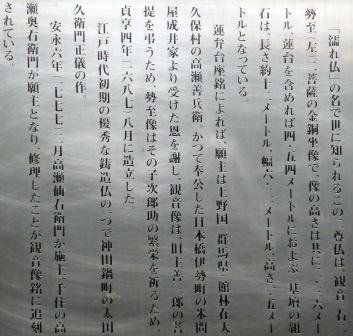 「濡れ仏」の名で世に知られるこの二尊仏は、観音（右）
勢至（左）二菩薩の金銅坐像で、像の高さは共に二・三六メー
トル、蓮台を含めれば四・五四メートルにおよぶ。基壇の組
石は、長さ約十二メートル・幅六・二メートル、高さ七五メー
トルとなっている。
蓮弁台座銘によれば、願主は上野国（群馬県）館林在大
久保村の高瀬善兵衛。かつて奉公した日本橋伊勢町の米問
屋成井家より受けた恩を謝し、観音像は、旧主善三郎の菩
提を弔うため、勢至像はその子次郎助の繁栄を祈るため、
貞享四年（一六八七）八月に造立した。
江戸時代初期の優秀な鋳造仏の一つで神田鍋町の太田
久衛門正儀の作。
安永六年（一七七七）二月高瀬仙右衛門が施主、千住の高
瀬奥右衛門が願主となり、修理したことが観音像銘に追刻
されている。